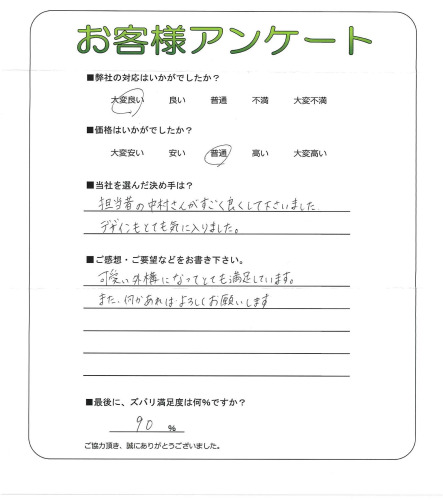 お客様アンケート
■弊社の対応はいかがでしたか？
大変良い 良い 普通 不満 大変不満
■価格はいかがでしたか？
大変安い 安い 普通 高い 大変高い
■当社を選んだ決め手は？
担当者の中村さんがすごく良くして下さいました
デザインもとても気に入りました。
■ご感想・ご要望などをお書き下さい。
可愛い外構になってとても満足しています。
また、何かあればよろしくお願いします
■最後に、ズバリ満足度は何%ですか？
90 %
ご協力頂き、誠にありがとうございました。